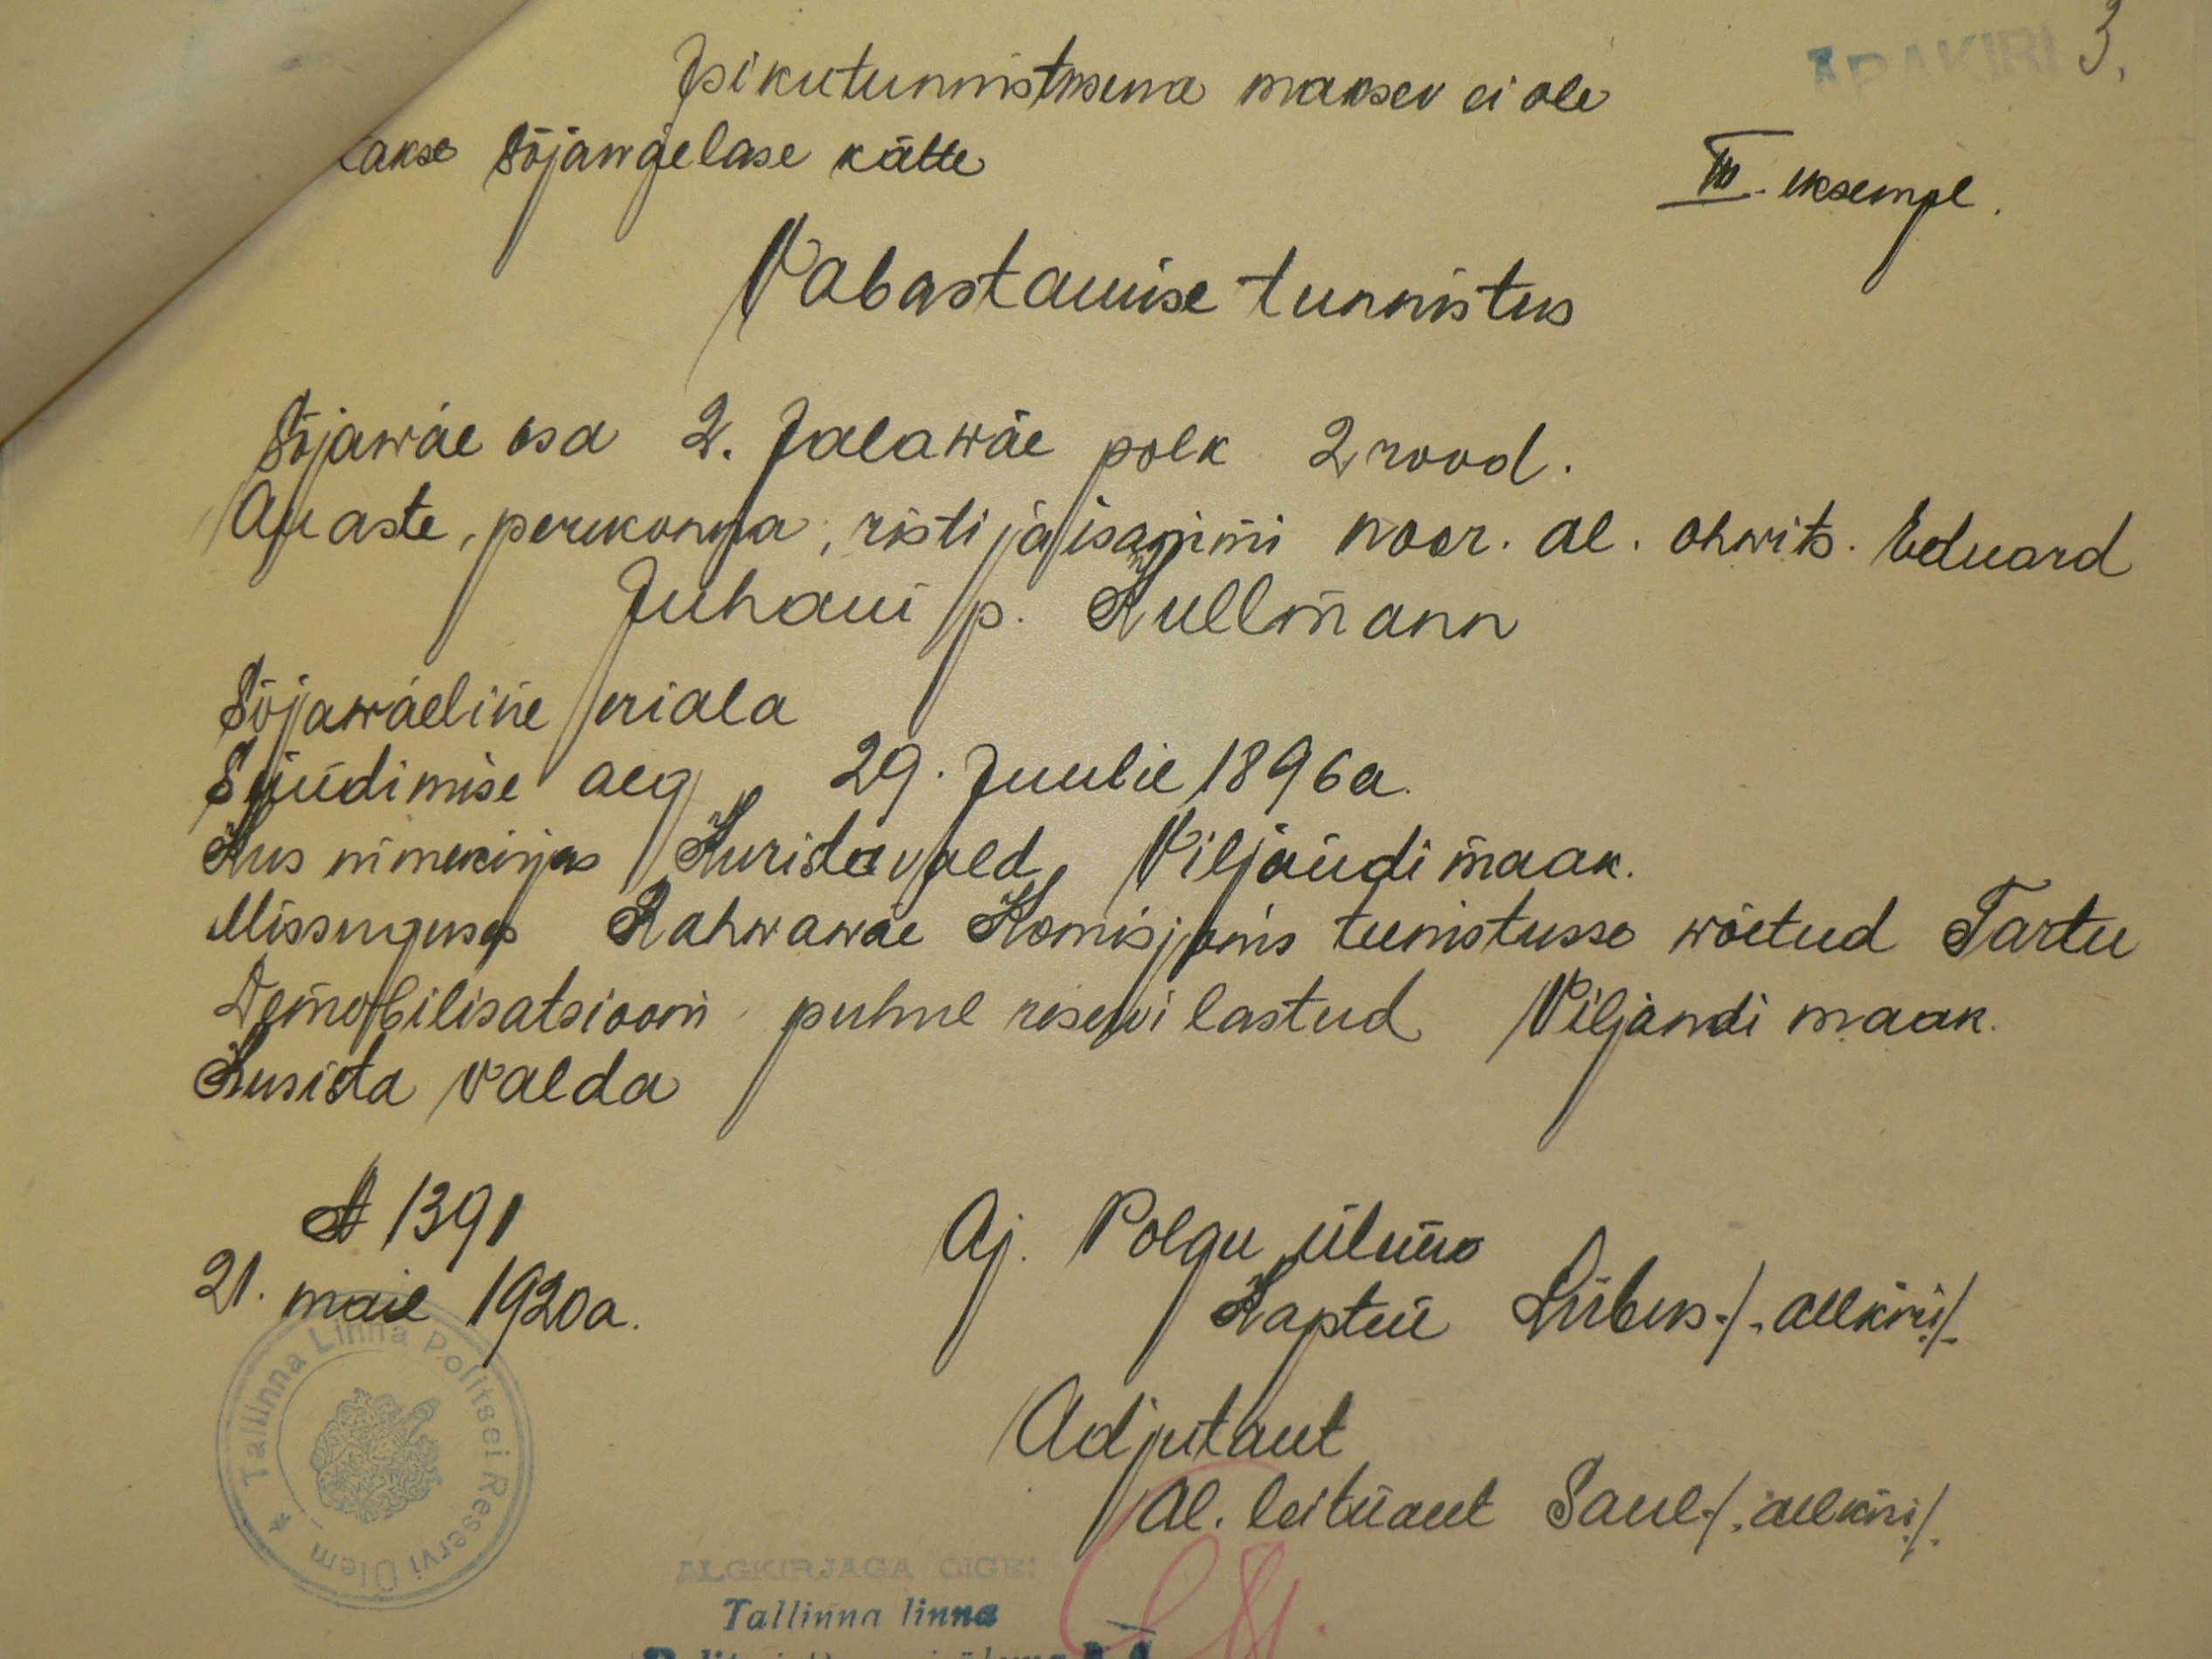 ÄRAKIRI 3.
Isikutunnistusena maksev ei ole
takse sõjawäelase kätte
III. eksempl.
Vabastamise tunnistus
Sõjawäe osa 2. Jalawäe polk 2 rood.
Au aste, perekonna, risti ja isanimi noor. al. ohwits. Eduard
Juhani p. Kullmann
Sõjawäeline eriala
Sündimise aeg 29. Juulil 1896 a.
Kus nimekirjas Kurista vald, Viljandi maak.
Missuguses Rahwawäe Komisjonis teenistusse wõetud Tartu
Demobilisatsiooni puhul reservi lastud Viljandi maak.
Kurista valda
№ 1391
21. mail 1920 a.
Aj. Polgu ülem
Kapten Liibus /.allkiri/.
Adjutant
Al. leitnant Saul /.allkiri/.
Tallinna Linna Politsei Reservi Ülem
ALGKIRJAGA ÕIGE:
Tallinna linna